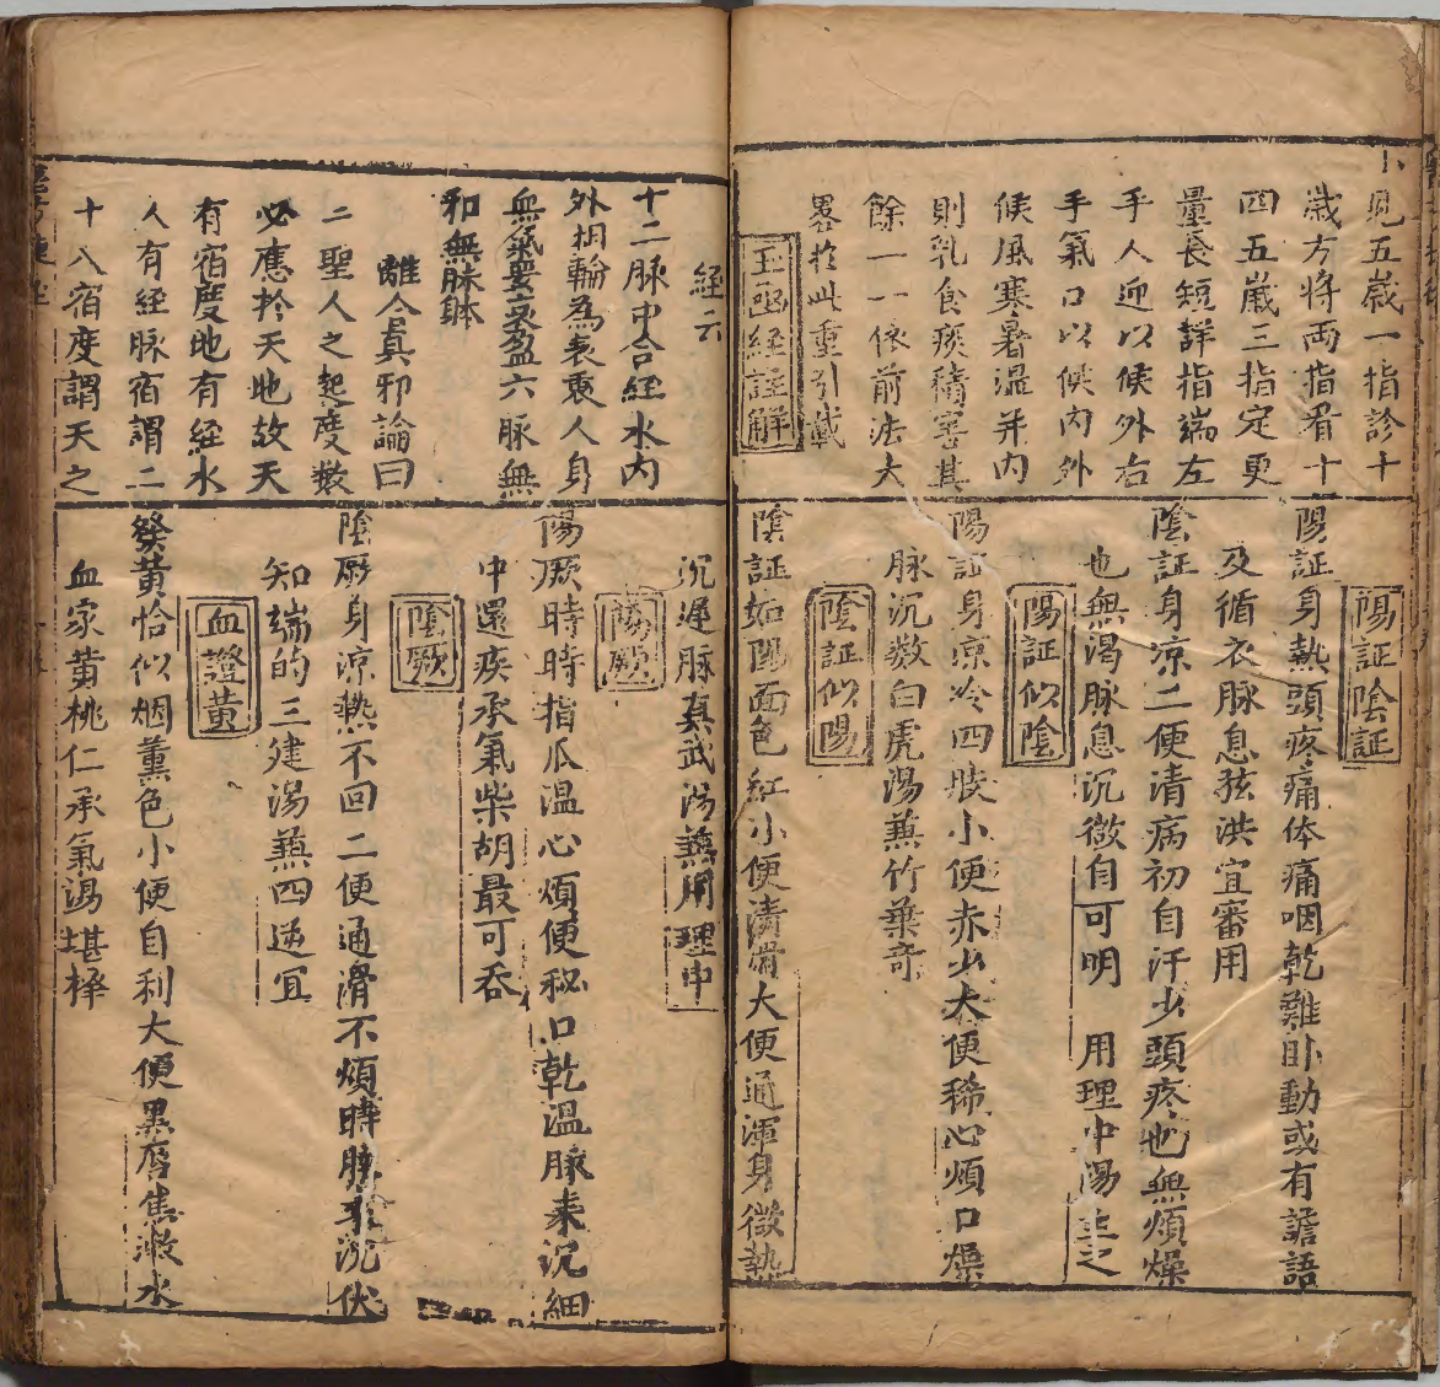 小児五歳一指診十
歳方将両指看十
四五歳三指定更
量長短詳指端左
手人迎以候外右
手氣口以候内外
候風寒暑温并内
則乳食痰積害其
餘一一依前法大
畧於此重引載
玉函経註解
陽証陰証
陽証身熱頭疼痛体痛咽乾難卧動或有譫語
及循衣脉息弦洪宜審用
陰証身凉二便清病初自汗少頭疼也無煩燥
也無渇脉息沉微自可明 用理中湯主之
陽証似陰
陽証身凉冷四肢小便赤少大便稀心煩口燥
脉沉数白虎湯兼竹葉奇
陰証似陽
陰証如陽面色紅小便清滑大便通渾身微熱
経云
十二脉中合経水内
外相輪為表裏人身
血氣要衰盈六脉無
和無脉躰
離合真邪論曰
二聖人之起度數
必應於天地故天
有宿度地有経水
人有経脉宿謂二
十八宿度謂天之
沉遅脉真武湯兼用理中
陽厥
陽厥時時指爪温心煩便秘口乾温脉来沉細
中還疾承氣柴胡最可吞
陰厥
陰厥身凉熱不回二便通滑不煩時脉来沉伏
知端的三建湯兼四逆宜
血證黄
發黄恰似烟薫色小便自利大便黒唇焦漱水
血家黄桃仁承氣湯堪擇